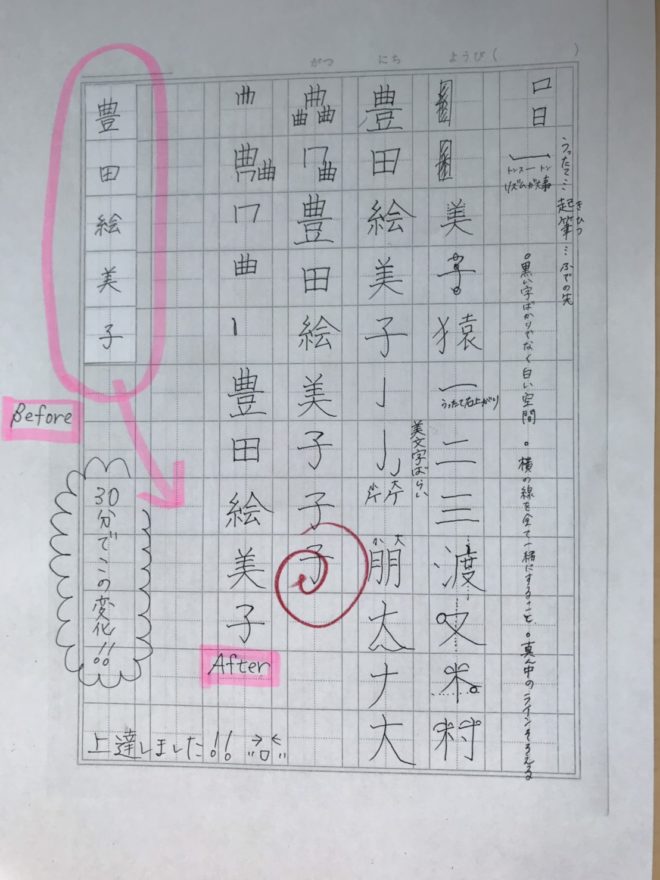 がつ にち ようび( )
口日
トンスートン
リズムが大事
うったて…起筆…ふでの先
きひつ
○黒い字ばかりじゃなく白い空間 ○横の線を全て一緒にすること、○真ん中のラインそろえる
美子猿一二三渡又木村
うったて右上がり
美文字ばらい
豊田絵美子
小 大
朋
大ナ大
曲
曲曲
冂曲
豊田絵美子子子
曲
曲
冂曲
冂曲
豊田絵美子
After
豊田絵美子
Before
30分でこの変化!!
上達しました!!